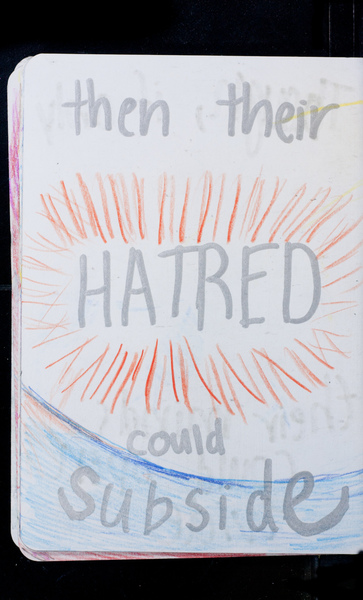 then their
HATRED
could
subside